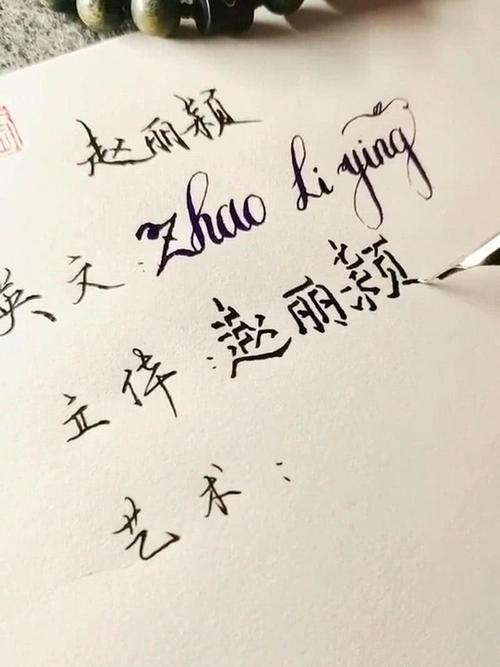 赵丽颖
英文:Zhao Li ying
立体:赵丽颖
艺术: